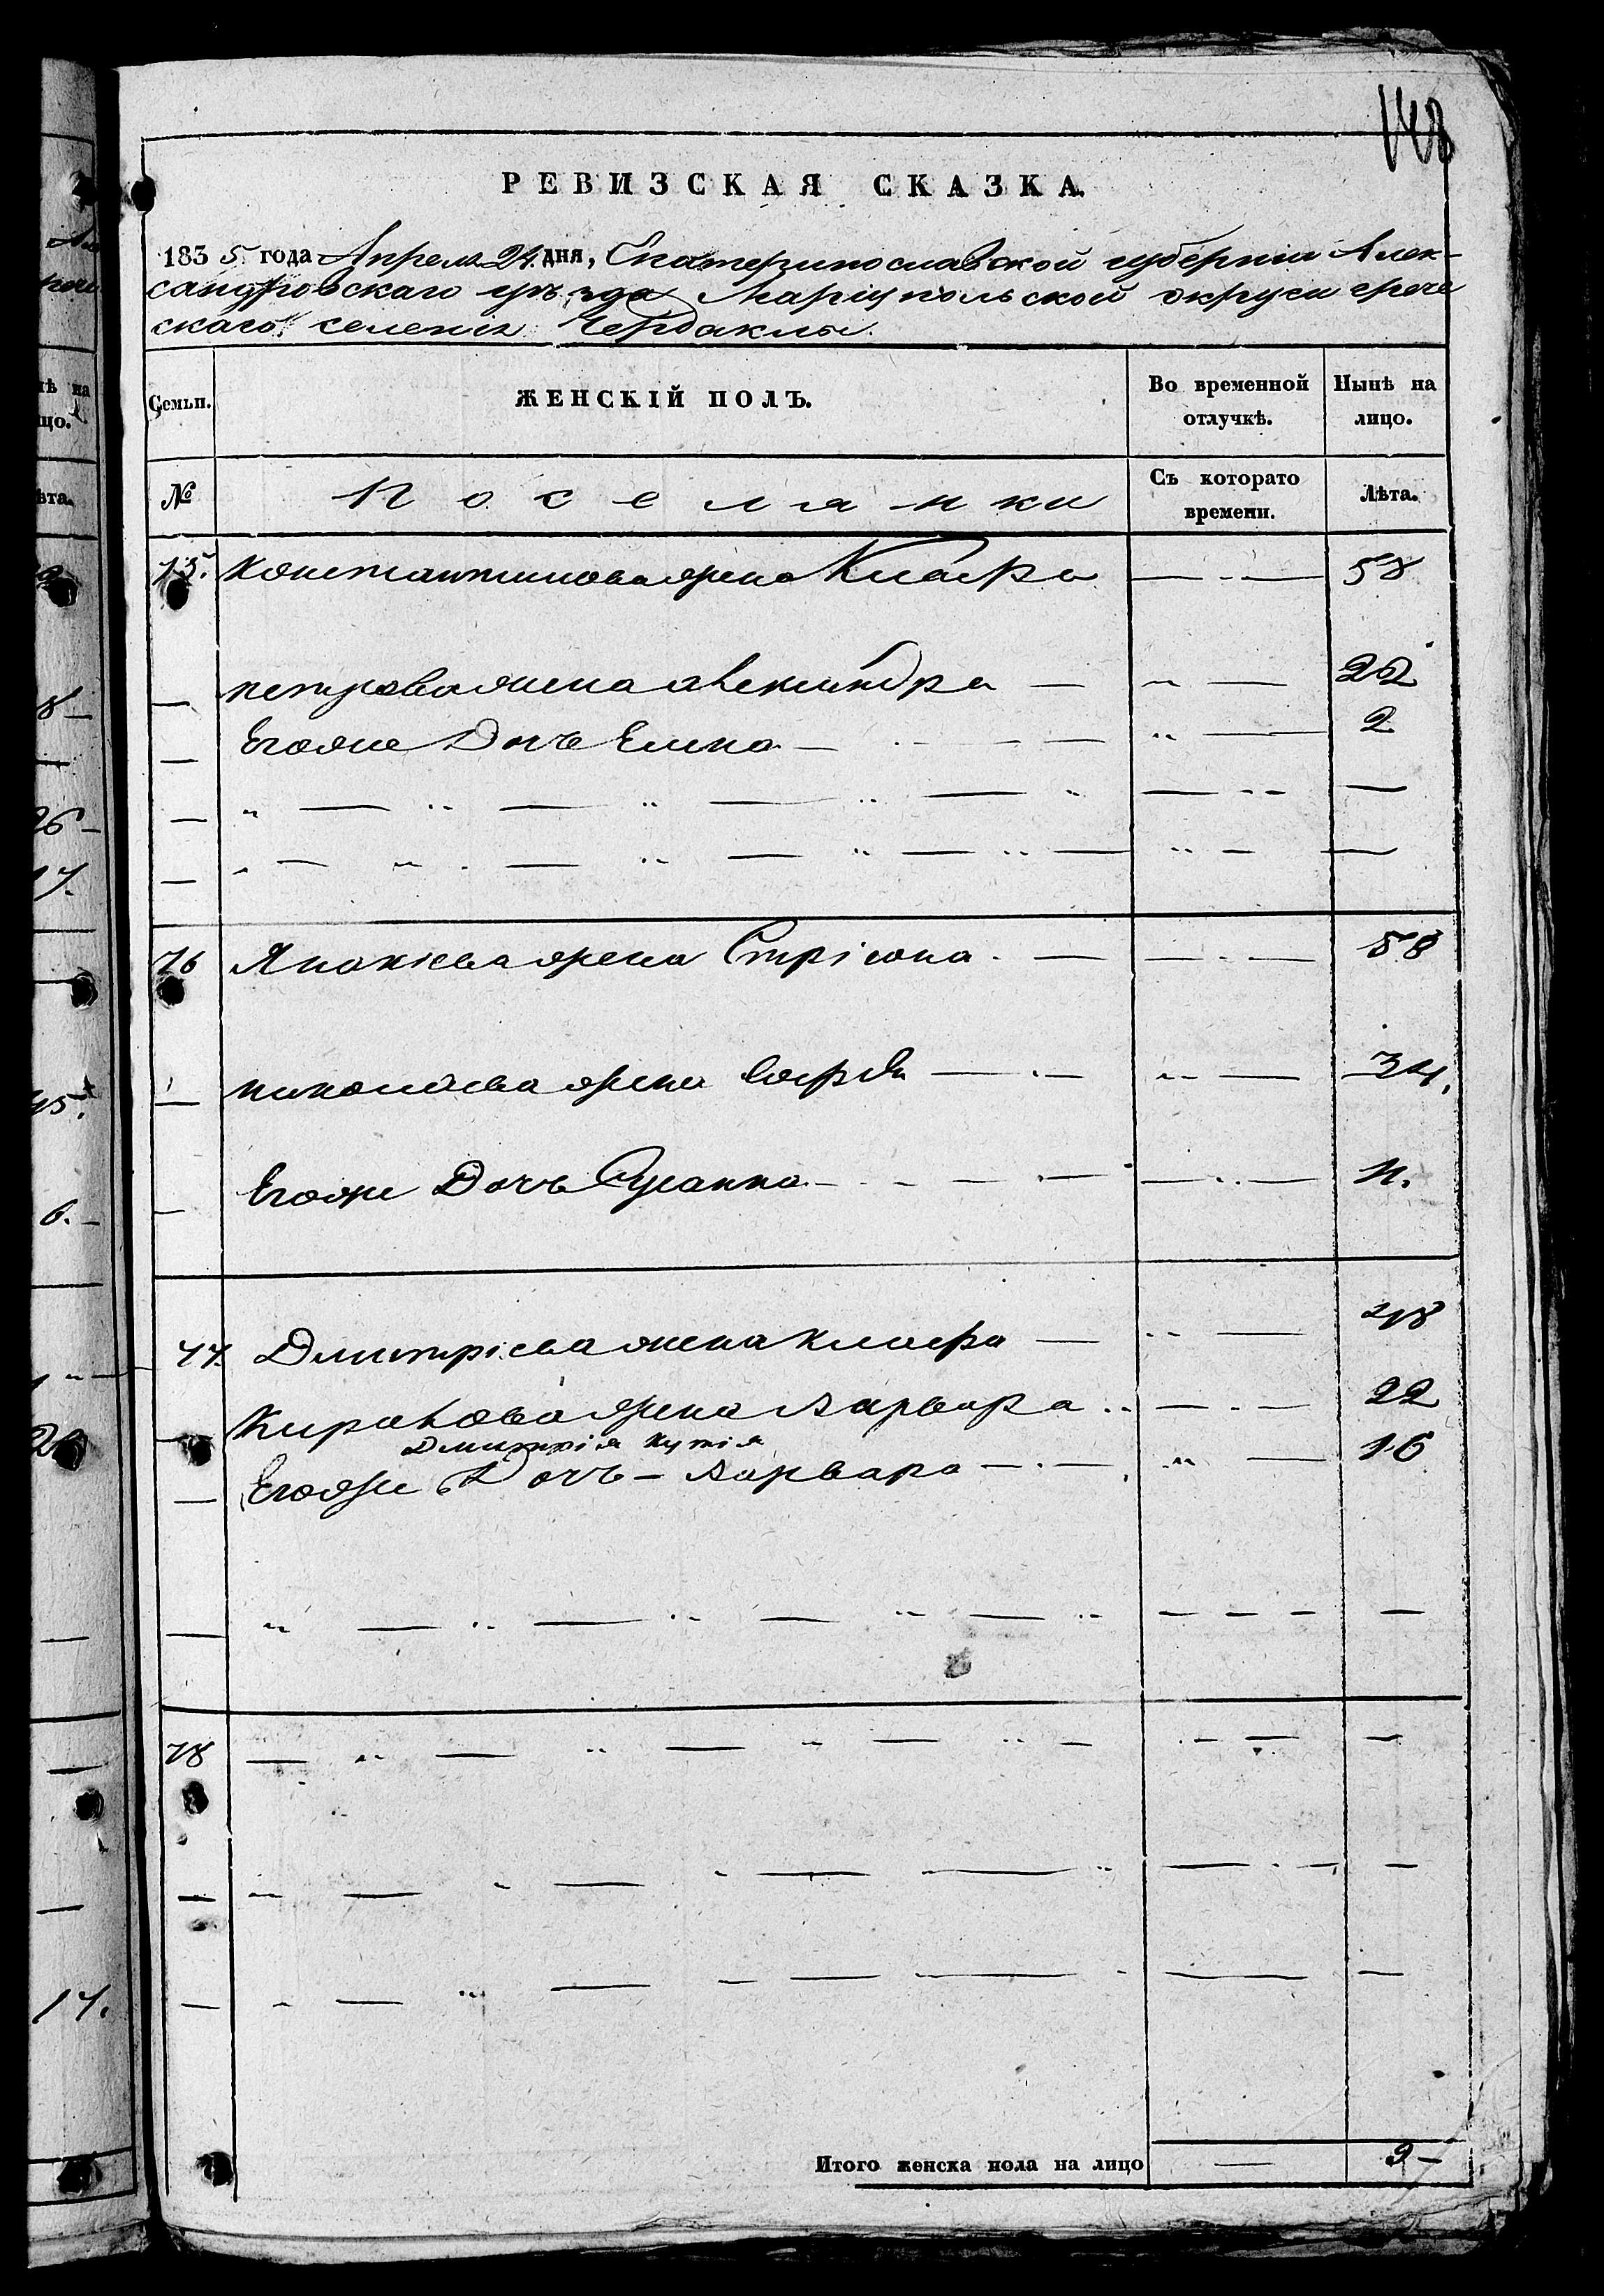 148
РЕВИЗСКАЯ СКАЗКА.
1835 года Апреля 24 дня, Екатеринославской губернии Алек-
сандровскаго уѣзда Мариупольской округи грече
скаго селения Чердаклы.
Семьи. ЖЕНСКІЙ ПОЛЪ. Во временной отлучкѣ. Нынѣ на лицо.
№ Поселянки Съ которато времени. Лѣта.
75. Константинова жена Киаера 58
петрова жена александра 22
Егоже Дочь Елена 2
76 Янакіева жена Стріона 58
николаева жена Софія 34.
Егоже Дочь Жоанна 11.
77. Дмитріева жена Киаера 48
Киракова жена варвара 22
Дмитрія Кутія
Егоже Дочь варвара 16
78
Итого женска пола на лицо 9